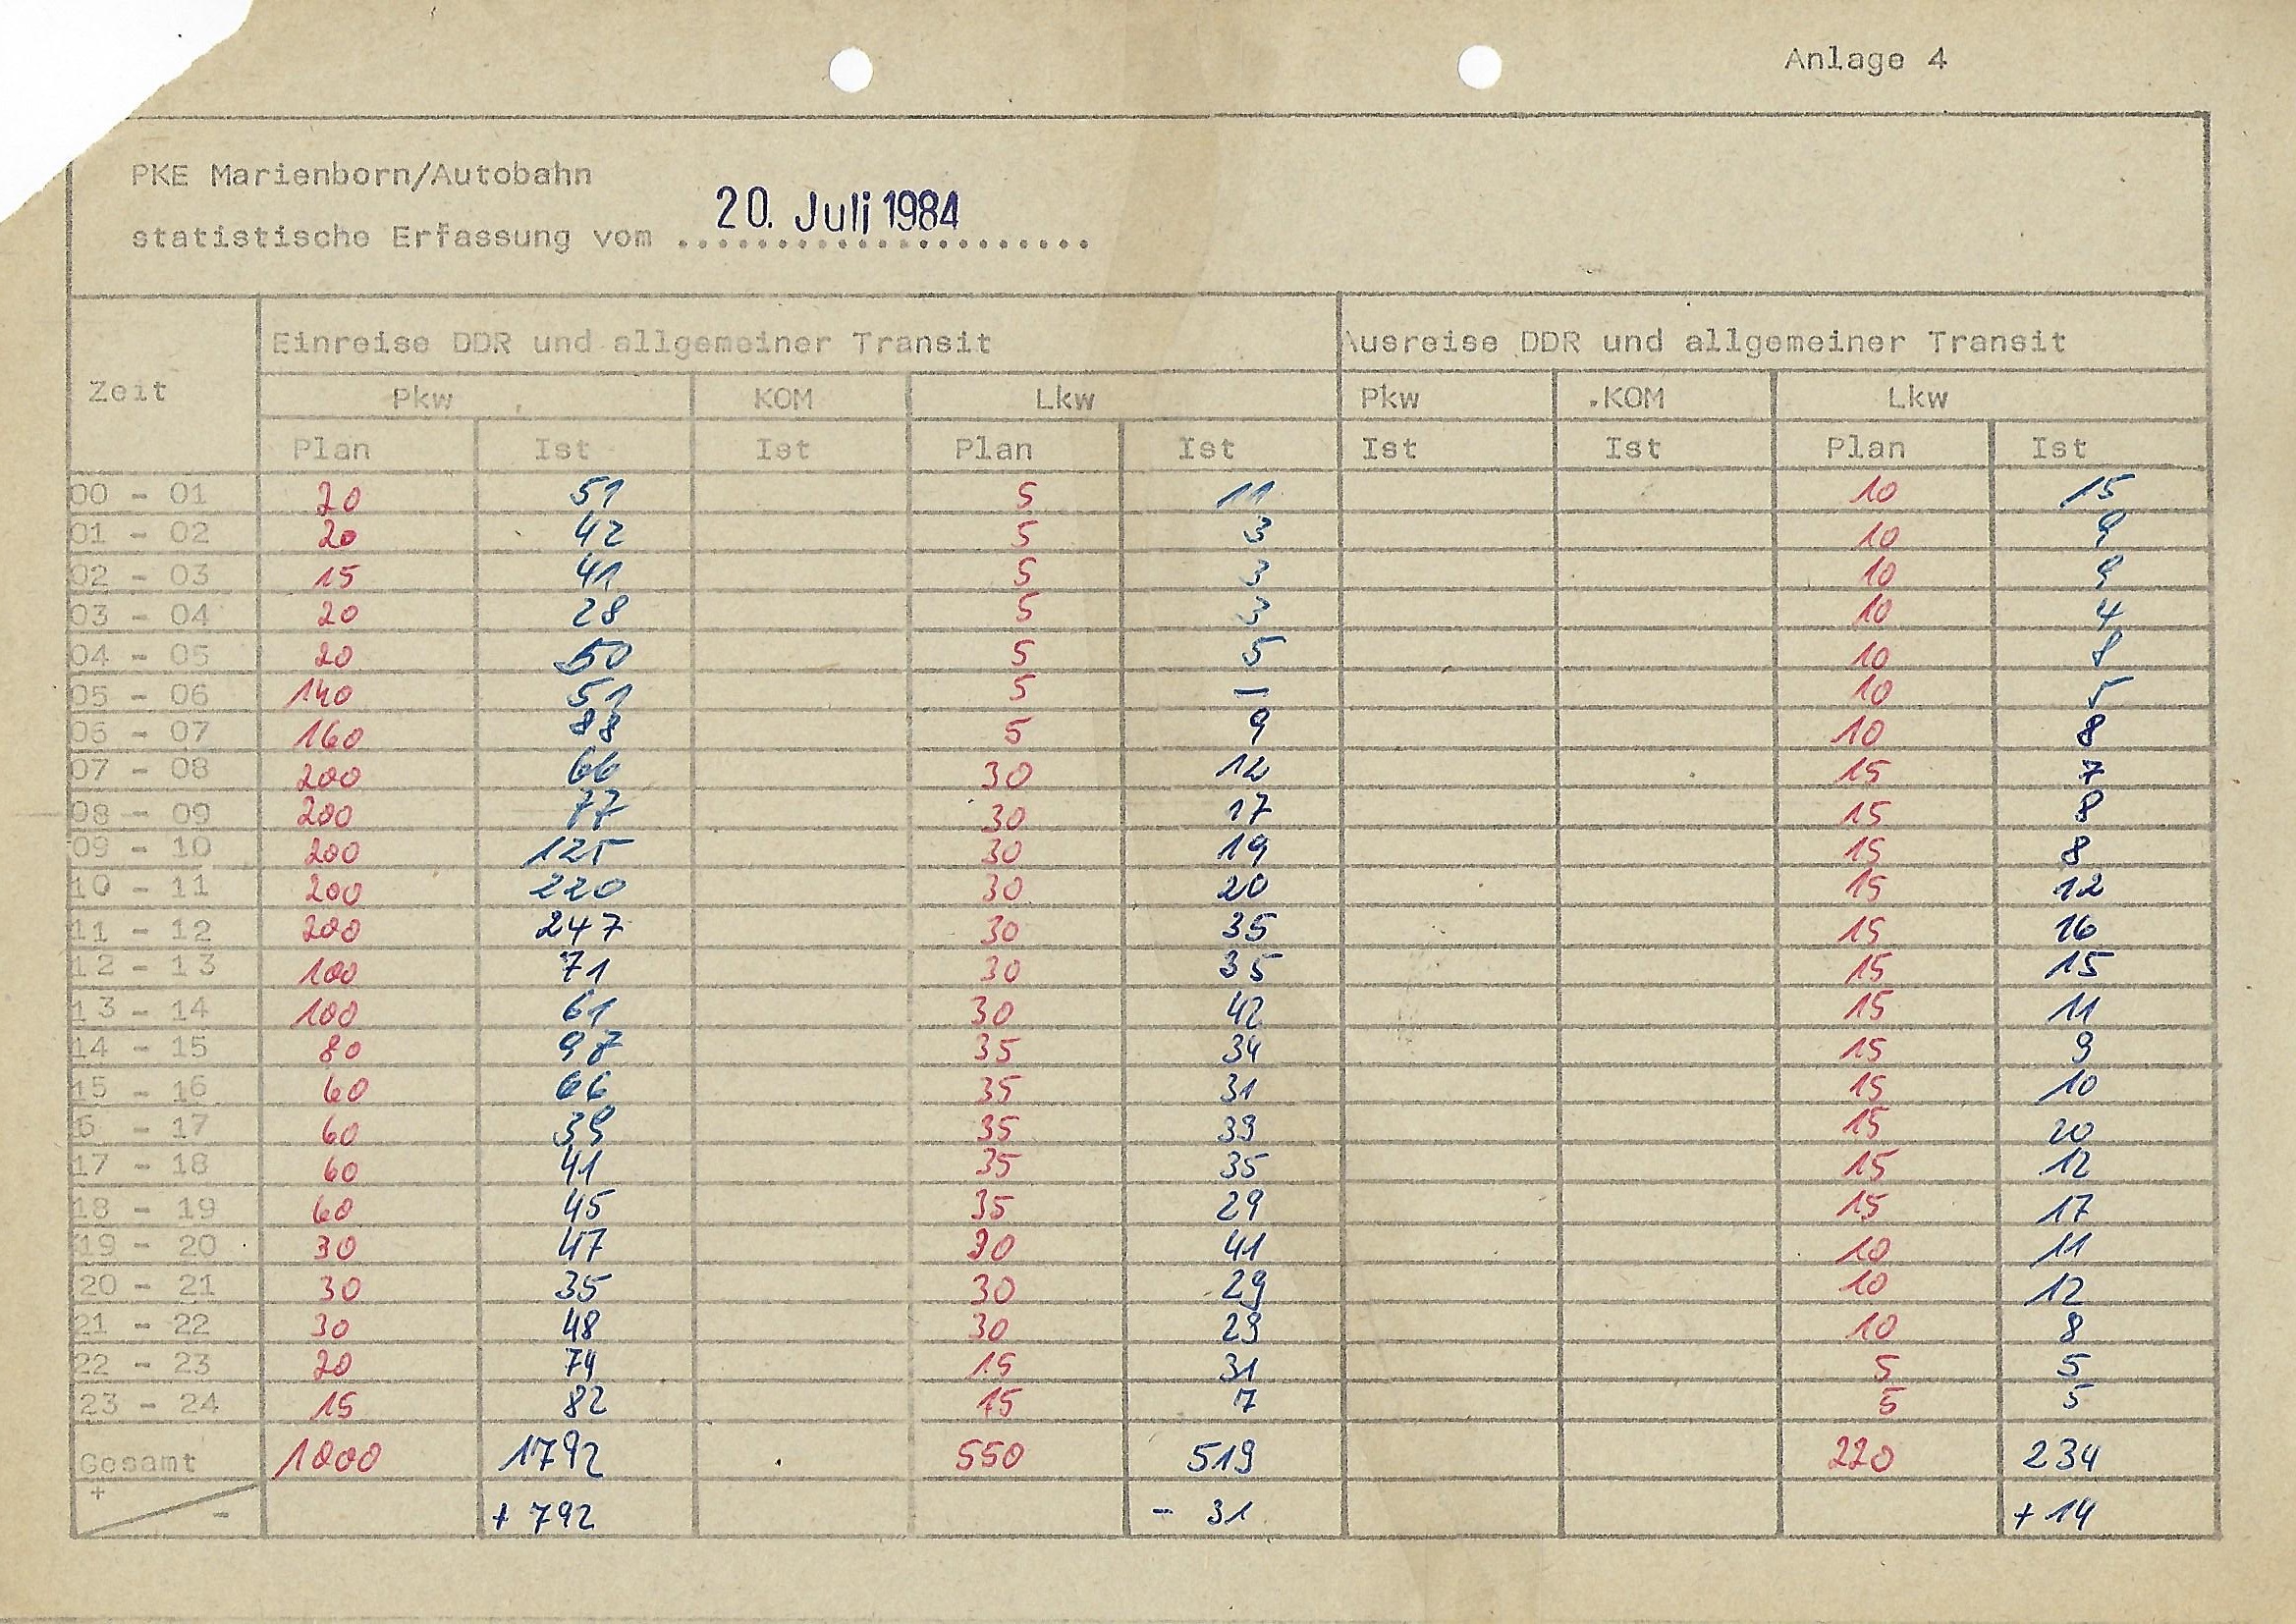 Anlage 4
PKE Marienborn/Autobahn
statistische Erfassung vom 20. Juli 1984
Einreise DDR und allgemeiner Transit Ausreise DDR und allgemeiner Transit
Zeit Pkw KOM Lkw Pkw KOM Lkw
Plan Ist Ist Plan Ist Ist Ist Plan Ist
00 - 01 20 51 5 11 10 15
01 - 02 20 42 5 3 10 9
02 - 03 15 41 5 3 10 9
03 - 04 20 28 5 3 10 4
04 - 05 20 50 5 5 10 8
05 - 06 140 51 5 — 10 5
06 - 07 160 88 5 9 10 8
07 - 08 200 66 30 12 15 7
08 - 09 200 77 30 17 15 8
09 - 10 200 125 30 19 15 8
10 - 11 200 220 30 20 15 12
11 - 12 200 247 30 35 15 16
12 - 13 100 71 30 35 15 15
13 - 14 100 61 30 42 15 11
14 - 15 80 97 35 34 15 9
15 - 16 60 66 35 31 15 10
6 - 17 60 39 35 39 15 20
17 - 18 60 41 35 35 15 12
18 - 19 60 45 35 29 15 17
19 - 20 30 47 30 41 10 11
20 - 21 30 35 30 29 10 12
21 - 22 30 48 30 29 10 8
22 - 23 20 74 15 31 5 5
23 - 24 15 82 15 7 5 5
Gesamt 1000 1792 550 519 220 234
+ - + 792 - 31 + 14